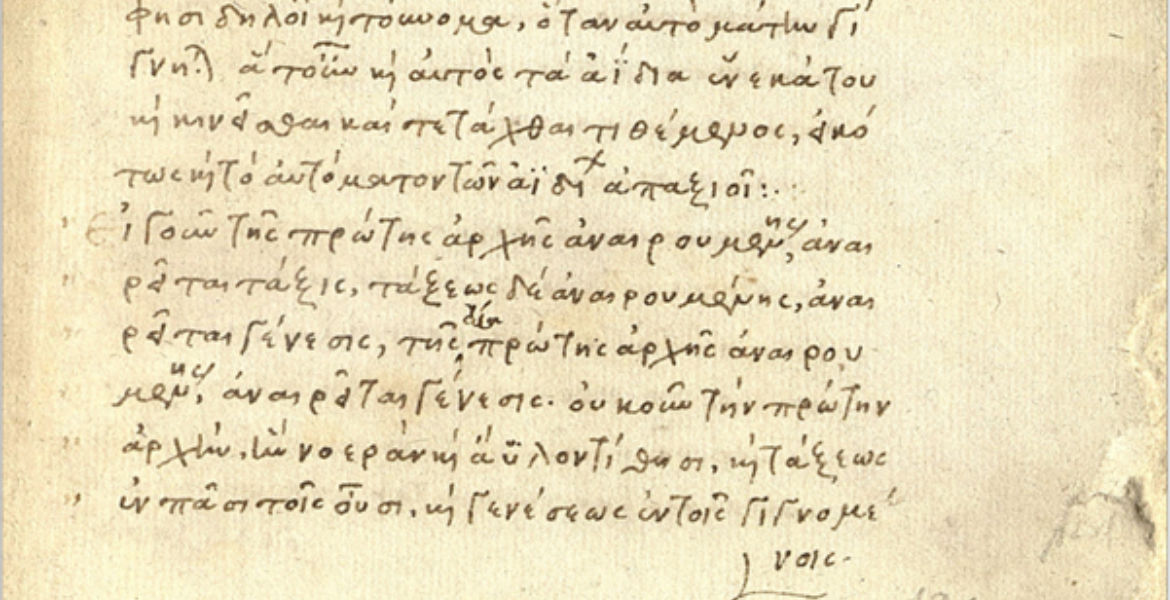 φησι δηλοῖ καὶ τοὔνομα, ὅταν αὐτὸ μάτην γί
γνηται) ἅτ' οὖν καὶ αὐτὸς τὰ ἀΐδια ἕνεκά του
καὶ κινεῖσθαι καὶ τετάχθαι τιθέμενος, εἰκό
τως καὶ τὸ αὐτόματον τῶν ἀϊδίων ἀπαξιοῖ:
Εἰ γοῦν τῆς πρώτης ἀρχῆς ἀναιρουμένης, ἀναι
ρεῖται τάξις, τάξεως δὲ ἀναιρουμένης, ἀναι
ρεῖται γένεσις, τῆς ἄρα πρώτης ἀρχῆς ἀναιρου
μένης, ἀναιρεῖται γένεσις. οὐκοῦν τὴν πρώτην
ἀρχὴν, ἣν νοερὰν καὶ ἄϋλον τίθησι, καὶ τάξεως
ἐν πᾶσι τοῖς οὖσι, καὶ γενέσεως ἐν τοῖς γιγνομέ
νοις.